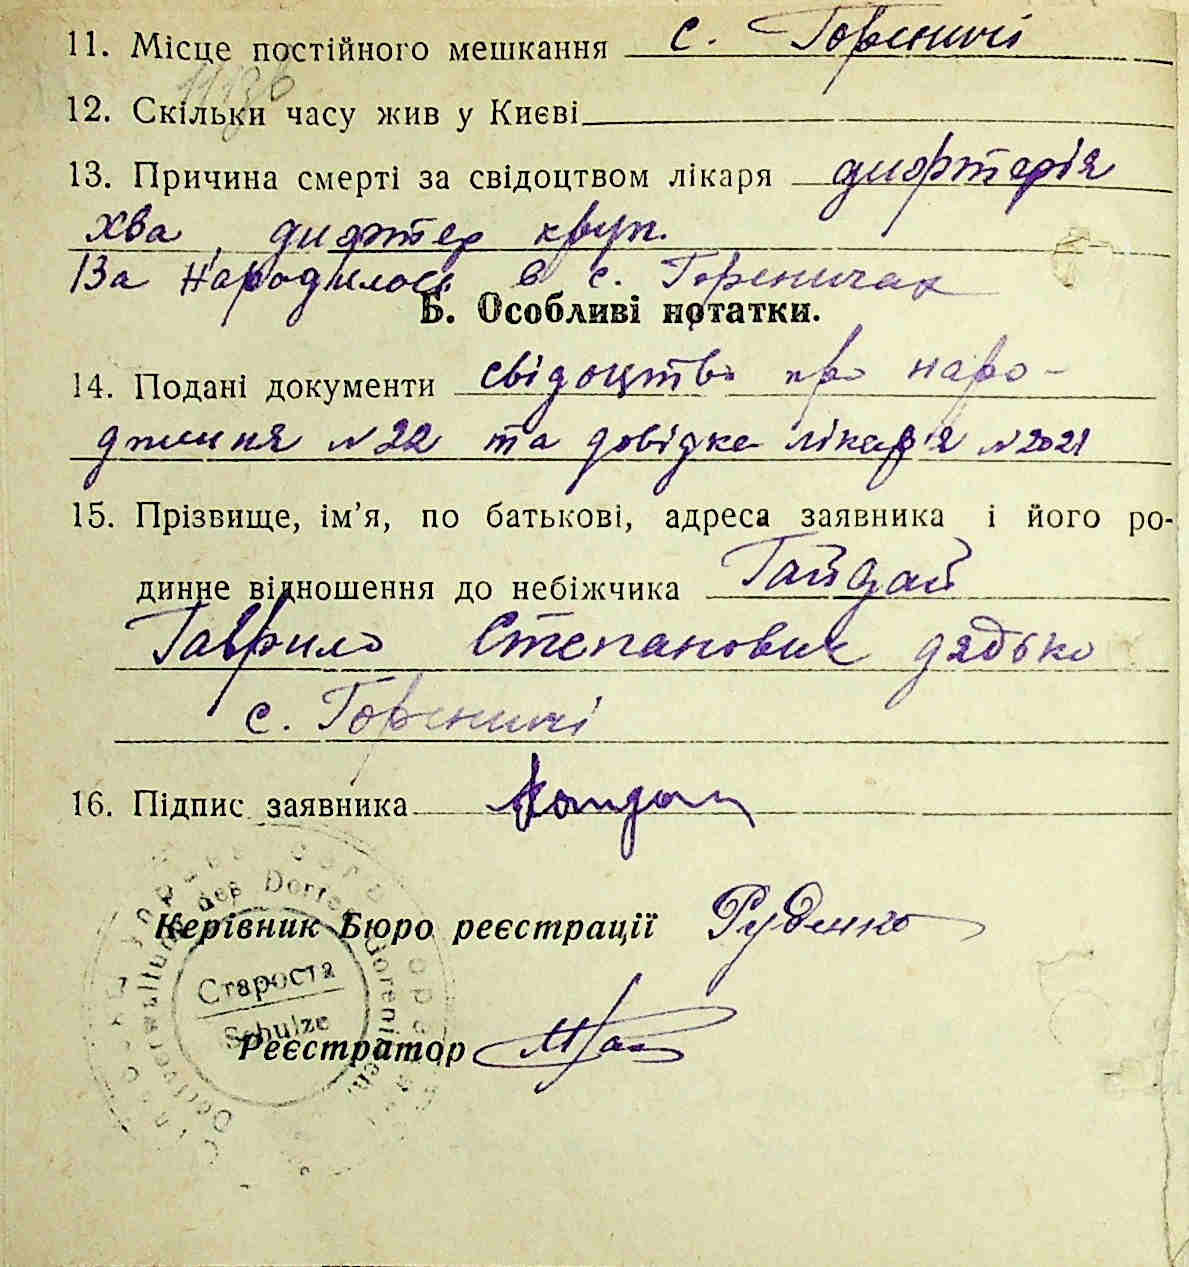 11. Місце постійного мешкання с. Гореничі
12. Скільки часу жив у Києві
13. Причина смерті за свідоцтвом лікаря дифтерія
зва, дифтер круп.
13а народилось в с. Гореничах
Б. Особливі нотатки.
14. Подані документи свідоцтво про наро-
дження №22 та довідка лікаря №2021
15. Прізвище, ім’я, по батькові, адреса заявника і його ро-
динне відношення до небіжчика Гайдай
Гаврило Степанович дядько
с. Гореничі
16. Підпис заявника
Керівник Бюро реєстрації Руденко
Староста
Schulze
Реєстратор